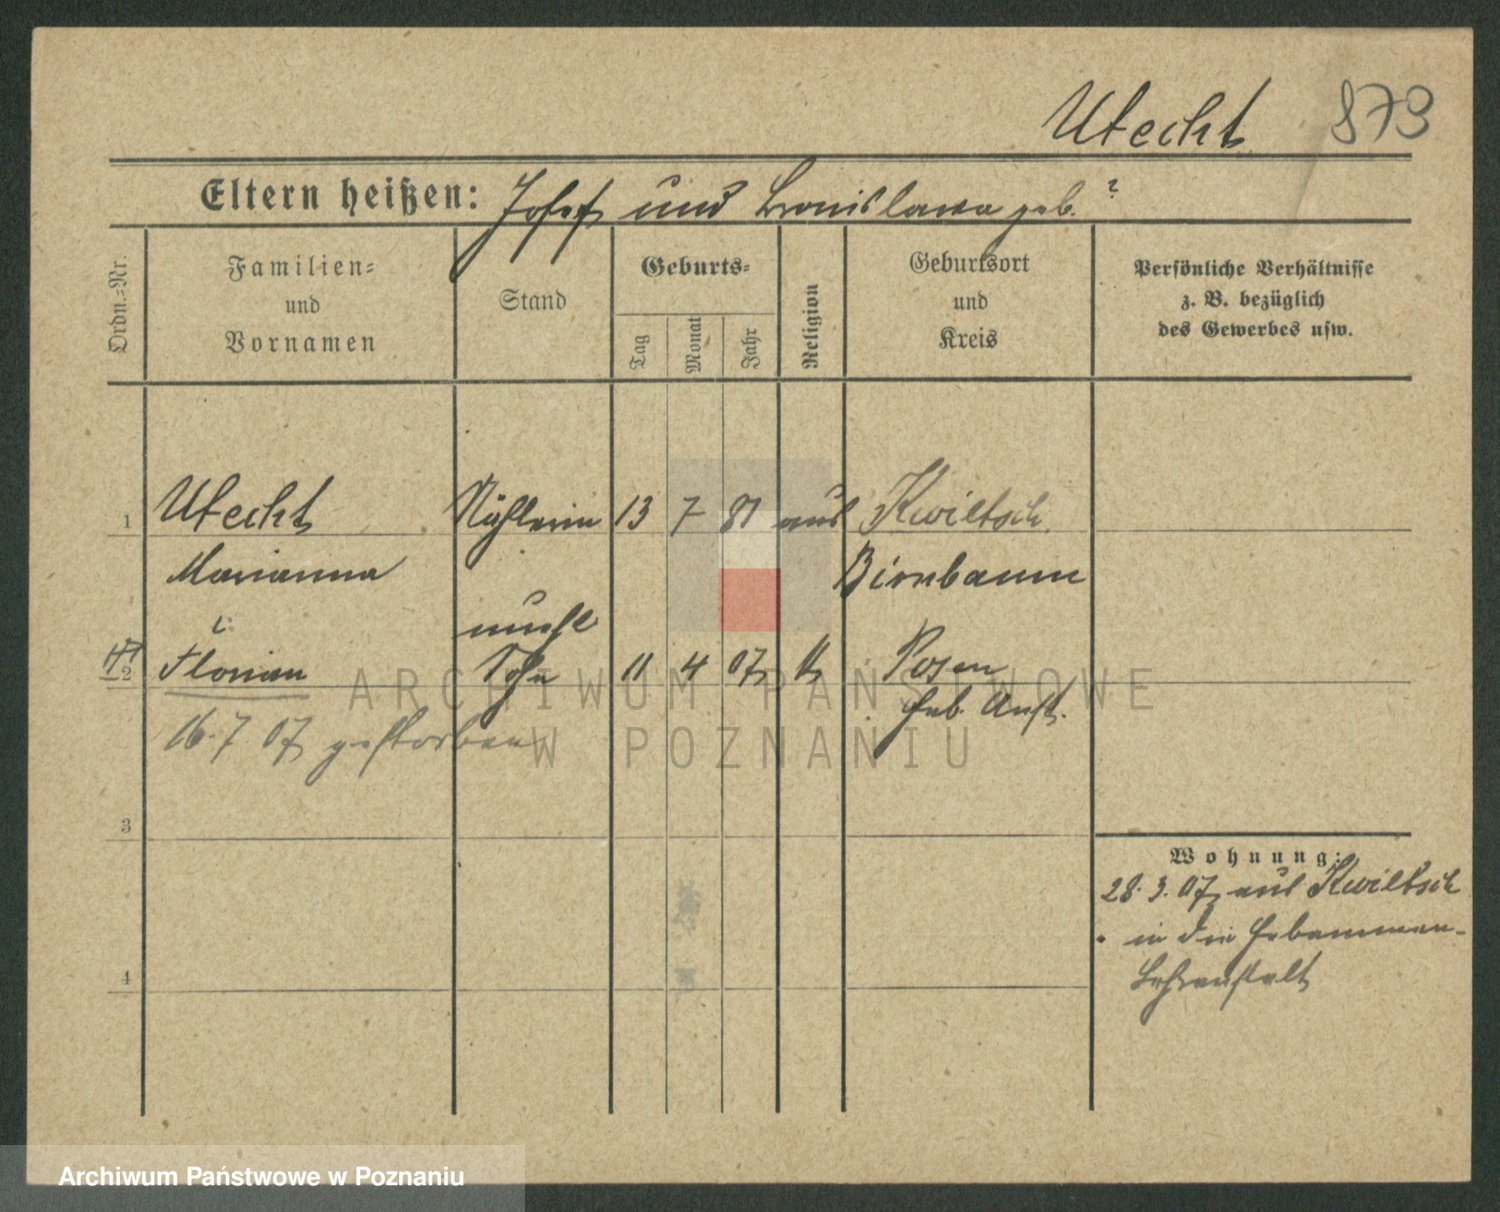 Utecht 873
Eltern heißen: Josef und Bronislawa geb. ?
Ordn.-Nr.
Familien-
und
Vornamen
Stand
Geburts-
Tag
Monat
Jahr
Religion
Geburtsort
und
Kreis
Persönliche Verhältnisse
z. B. bezüglich
des Gewerbes usw.
1 Utecht Nähterin 13 7 81 aus Kwiltsch
Marianna Birnbaum
unehl
2 Florian Sohn 11 4 07 k Posen
Heb. Anst.
16.7 07 gestorben
3
4
Wohnung:
28.3.07 aus Kwiltsch
in die Hebammen-
Lehranstalt
ARCHIWUM PAŃSTWOWE
W POZNANIU
Archiwum Państwowe w Poznaniu